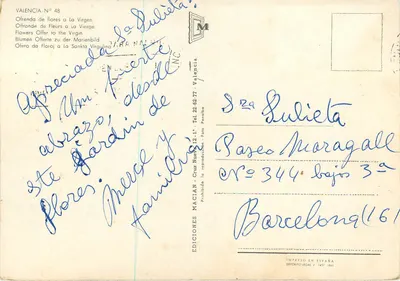 VALENCIA Nº 48
Ofrenda de flores a La Virgen
Offrande de Fleurs a La Vierge
Flowers Offer to the Virgin
Blumen Offerte zu der Marienbild
Oferta de Flores à La Santa Virgem
Apreciada Sª Julieta:
Un fuerte
abrazo, desde
éste Jardín de
flores.
Merce y
família
M
EDICIONES MACIAN - Cruz Nueva
Valencia
Prohibida la reproducción
Sra Julieta
Paseo Maragall
Nº 344 bajos 3ª
Barcelona (16)